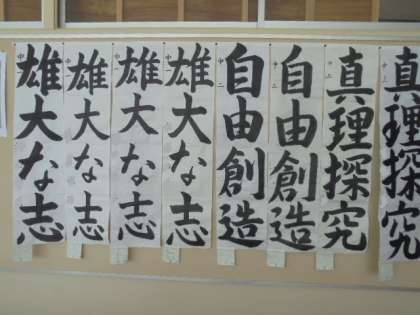 真理探究
真理探究
中二
自由創造
中二
自由創造
雄大な志
雄大な志
雄大な志
雄大な志